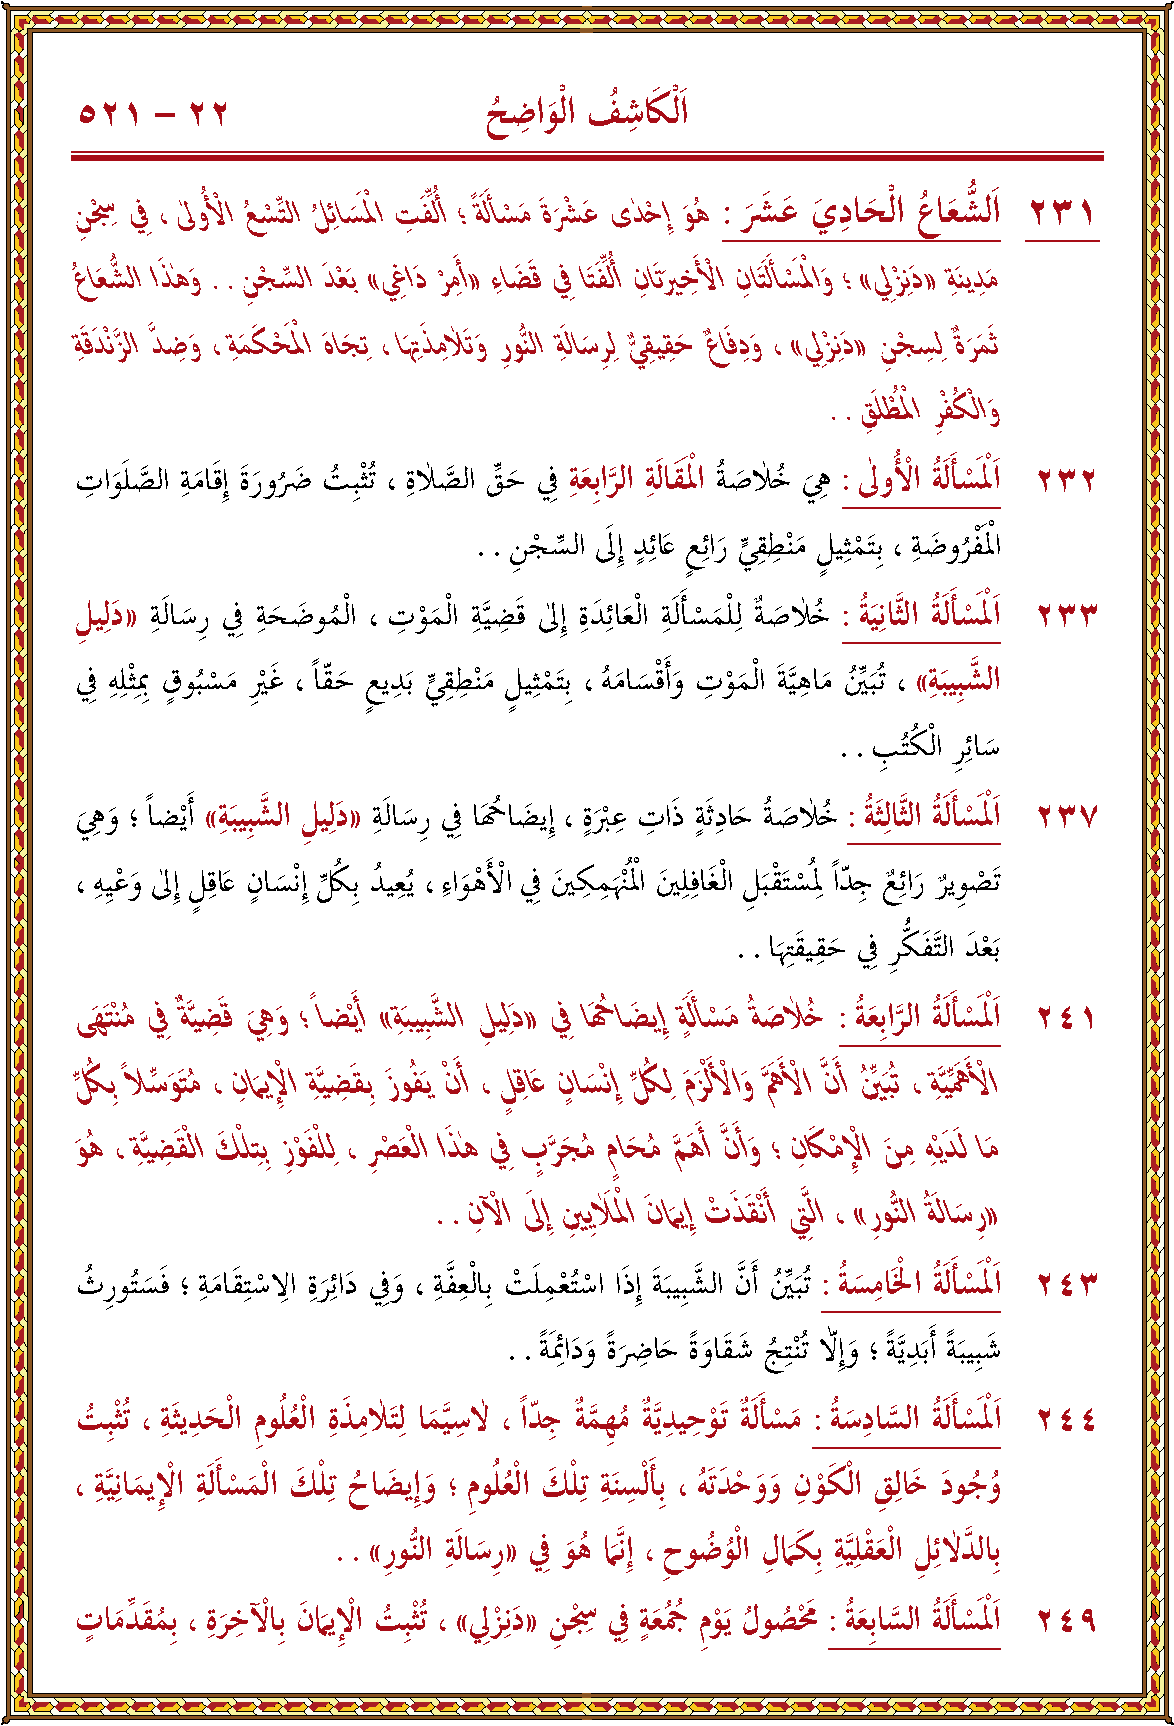 ٥٢١ – ٢٢ اَلْكَاشِفُ الْوَاضِحُ
٢٣١ اَلشُّعَاعُ الْحَادِيَ عَشَرَ : هُوَ إِحْدٰى عَشْرَةَ مَسْأَلَةً ؛ أُلِّفَتِ الْمَسَائِلُ التِّسْعُ الْأُولٰى ، فِي سِجْنِ
مَدِينَةِ «دَنِزْلِي» ؛ وَالْمَسْأَلَتَانِ الْأَخِيرَتَانِ أُلِّفَتَا فِي قَضَاءِ «أَمِرْ دَاغِي» بَعْدَ السِّجْنِ . . وَهٰذَا الشُّعَاعُ
ثَمَرَةٌ لِسِجْنِ «دَنِزْلِي» ، وَدِفَاعٌ حَقِيقِيٌّ لِرِسَالَةِ النُّورِ وَتَلَامِذَتِهَا ، تِجَاهَ الْمَحْكَمَةِ ، وَضِدَّ الزَّنْدَقَةِ
وَالْكُفْرِ الْمُطْلَقِ . .
٢٣٢ اَلْمَسْأَلَةُ الْأُولٰى : هِيَ خُلَاصَةُ الْمَقَالَةِ الرَّابِعَةِ فِي حَقِّ الصَّلَاةِ ، تُثْبِتُ ضَرُورَةَ إِقَامَةِ الصَّلَوَاتِ
الْمَفْرُوضَةِ ، بِتَمْثِيلٍ مَنْطِقِيٍّ رَائِعٍ عَائِدٍ إِلَى السِّجْنِ . .
٢٣٣ اَلْمَسْأَلَةُ الثَّانِيَةُ : خُلَاصَةٌ لِلْمَسْأَلَةِ الْعَائِدَةِ إِلٰى قَضِيَّةِ الْمَوْتِ ، الْمُوضَحَةِ فِي رِسَالَةِ «دَلِيلِ
الشَّبِيبَةِ» ، تُبَيِّنُ مَاهِيَّةَ الْمَوْتِ وَأَقْسَامَهُ ، بِتَمْثِيلٍ مَنْطِقِيٍّ بَدِيعٍ حَقّاً ، غَيْرِ مَسْبُوقٍ بِمِثْلِهِ فِي
سَائِرِ الْكُتُبِ . .
٢٣٧ اَلْمَسْأَلَةُ الثَّالِثَةُ : خُلَاصَةُ حَادِثَةٍ ذَاتِ عِبْرَةٍ ، إِيضَاحُهَا فِي رِسَالَةِ «دَلِيلِ الشَّبِيبَةِ» أَيْضاً ؛ وَهِيَ
تَصْوِيرٌ رَائِعٌ جِدّاً لِمُسْتَقْبَلِ الْغَافِلِينَ الْمُنْهَمِكِينَ فِي الْأَهْوَاءِ ، يُعِيدُ بِكُلِّ إِنْسَانٍ عَاقِلٍ إِلٰى وَعْيِهِ ،
بَعْدَ التَّفَكُّرِ فِي حَقِيقَتِهَا . .
٢٤١ اَلْمَسْأَلَةُ الرَّابِعَةُ : خُلَاصَةُ مَسْأَلَةٍ إِيضَاحُهَا فِي «دَلِيلِ الشَّبِيبَةِ» أَيْضاً ؛ وَهِيَ قَضِيَّةٌ فِي مُنْتَهَى
الْأَهَمِّيَّةِ ، تُبَيِّنُ أَنَّ الْأَهَمَّ وَالْأَلْزَمَ لِكُلِّ إِنْسَانٍ عَاقِلٍ ، أَنْ يَفُوزَ بِقَضِيَّةِ الْإِيمَانِ ، مُتَوَسِّلاً بِكُلِّ
مَا لَدَيْهِ مِنَ الْإِمْكَانِ ؛ وَأَنَّ أَهَمَّ مُحَامٍ مُجَرَّبٍ فِي هٰذَا الْعَصْرِ ، لِلْفَوْزِ بِتِلْكَ الْقَضِيَّةِ ، هُوَ
«رِسَالَةُ النُّورِ» ، الَّتِي أَنْقَذَتْ إِيمَانَ الْمَلَايِينِ إِلَى الْآنِ . .
٢٤٣ اَلْمَسْأَلَةُ الْخَامِسَةُ : تُبَيِّنُ أَنَّ الشَّبِيبَةَ إِذَا اسْتُعْمِلَتْ بِالْعِفَّةِ ، وَفِي دَائِرَةِ الِاسْتِقَامَةِ ؛ فَسَتُورِثُ
شَبِيبَةً أَبَدِيَّةً ؛ وَإِلَّا تُنْتِجُ شَقَاوَةً حَاضِرَةً وَدَائِمَةً . .
٢٤٤ اَلْمَسْأَلَةُ السَّادِسَةُ : مَسْأَلَةٌ تَوْحِيدِيَّةٌ مُهِمَّةٌ جِدّاً ، لَاسِيَّمَا لِتَلَامِذَةِ الْعُلُومِ الْحَدِيثَةِ ، تُثْبِتُ
وُجُودَ خَالِقِ الْكَوْنِ وَوَحْدَتَهُ ، بِأَلْسِنَةِ تِلْكَ الْعُلُومِ ؛ وَإِيضَاحُ تِلْكَ الْمَسْأَلَةِ الْإِيمَانِيَّةِ ،
بِالدَّلَائِلِ الْعَقْلِيَّةِ بِكَمَالِ الْوُضُوحِ ، إِنَّمَا هُوَ فِي «رِسَالَةِ النُّورِ» . .
٢٤٩ اَلْمَسْأَلَةُ السَّابِعَةُ : مَحْصُولُ يَوْمِ جُمُعَةٍ فِي سِجْنِ «دَنِزْلِي» ، تُثْبِتُ الْإِيمَانَ بِالْآخِرَةِ ، بِمُقَدِّمَاتٍ